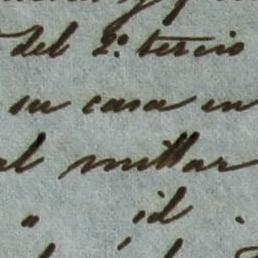 del 2º. tercio
su casa en
al millar
" id .